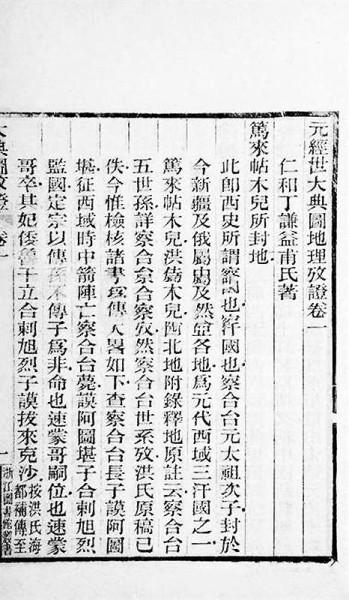 元經世大典圖地理攷證卷一
仁和丁謙益甫氏著
篤來帖木兒所封地
此即西史所謂也國也察合台元太祖次子封於
今新疆及俄屬及然各地為元代西域三汗國之一
篤來帖木兒洪木兒西北地附錄釋地原註云察合台
五世孫詳察合台攷然察合台世系攷洪氏原稿已
佚今惟檢核諸書傳畧如下查察合台長子謨阿圖
堪征西域時中箭陣亡察合台薨謨阿圖堪子合剌旭烈
監國定宗以傳孫不傳子為非命也速蒙哥嗣位也速蒙
哥卒其妃倭魯干立合剌旭烈子謨拔來克沙按洪氏海
都補傳至
大典圖攷證 卷一 一
浙江圖書館叢書